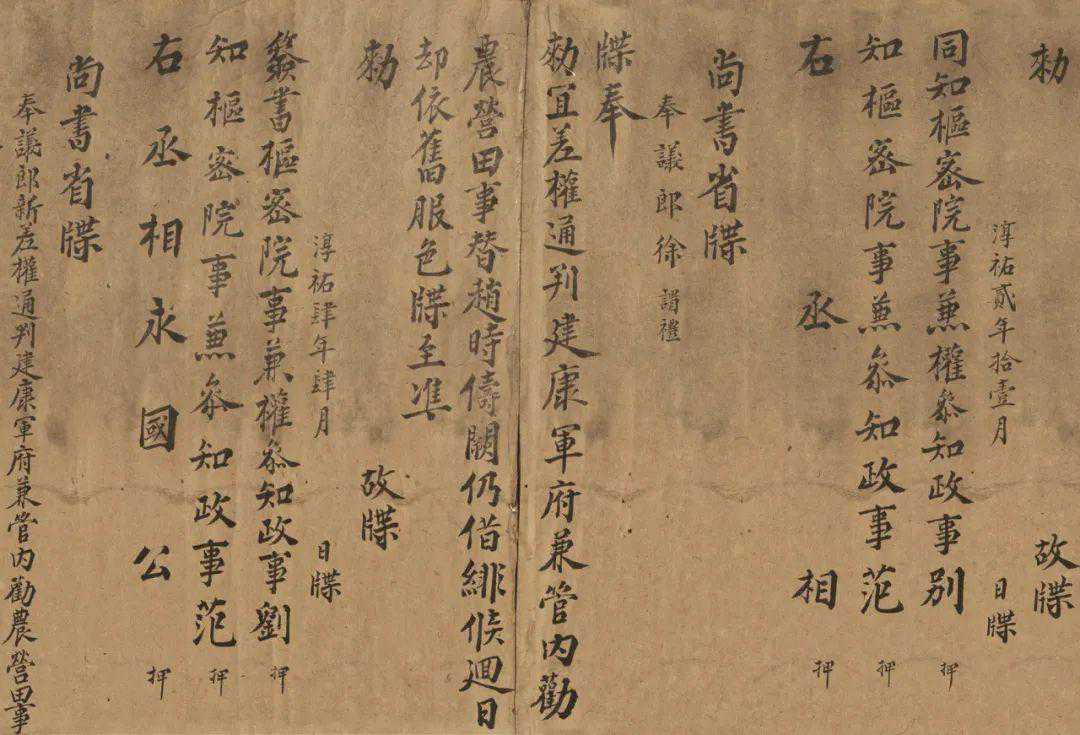 勑 故牒
淳祐貳年拾壹月 日牒
同知樞密院事兼權叅知政事別 押
知樞密院事兼叅知政事范 押
右丞相 押
尚書省牒
奉議郎徐謂禮
牒奉
勑宜差權通判建康軍府兼管內勸
農營田事替趙時儔闕仍借緋候迴日
却依舊服色牒至準
勑 故牒
淳祐肆年肆月 日牒
簽書樞密院事兼權叅知政事劉 押
知樞密院事兼叅知政事范 押
右丞相永國公 押
尚書省牒
奉議郎新差權通判建康軍府兼管內勸農營田事